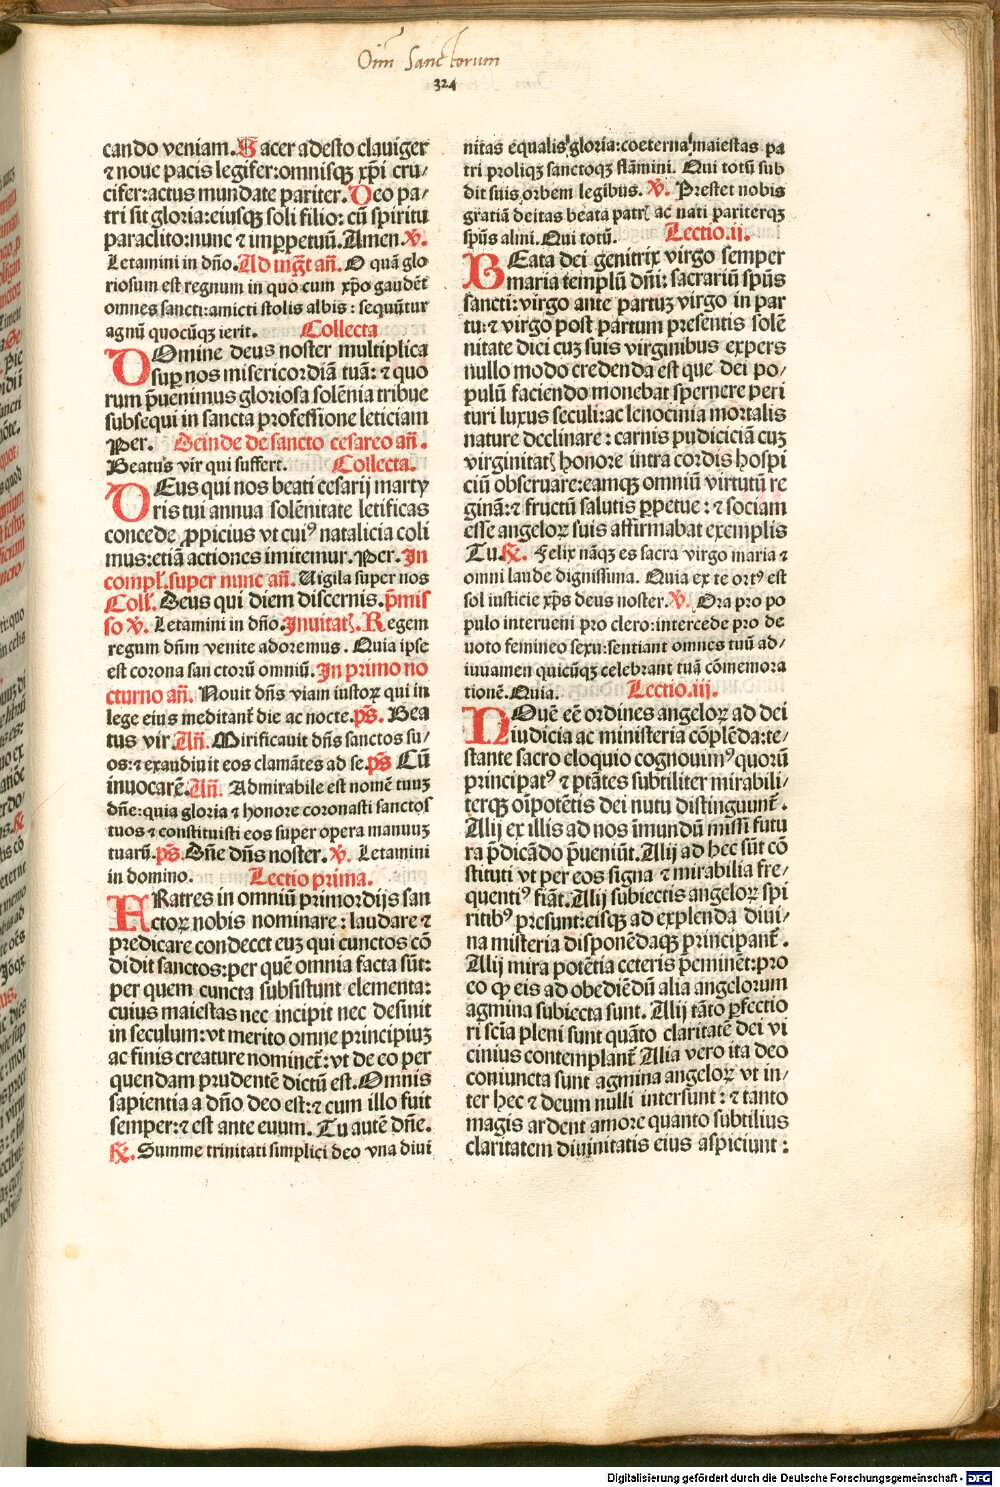 Oim̃ Sanctorum
324
cando veniam. Sacer adesto clauiger
⁊ noue pacis legifer: omnisqꝫ xp̄i cru/
cifer: actus mundate pariter. Deo pa/
tri sit gloria: eiusqꝫ soli filio: cū spiritu
paraclito: nunc ⁊ imꝑpetuū. Amen. ℣.
Letamini in dño. Ad mḡt añ. O quā glo
riosum est regnum in quo cum xp̄o gaudēt
omnes sancti: amicti stolis albis: sequūtur
agnū quocūqꝫ ierit. Collecta
DOmine deus noster multiplica
suꝑ nos misericordiā tuā: ⁊ quo
rum p̄uenimus gloriosa solēnia tribue
subsequi in sancta professione leticiam
Per. Deinde de sancto cesareo añ.
Beatus vir qui suffert. Collecta.
DEus qui nos beati cesarij marty
ris tui annua solēnitate letificas
concede ꝓpicius vt cuiꝰ natalicia coli
mus: etiā actiones imitemur. Per. In
compl̄. super nunc añ. Uigila super nos
Coll̄. Deus qui diem discernis. p̄mis
so ℣. Letamini in dño. Inuitat̄. Regem
regum dñm venite adoremus. Quia ipse
est corona sanctorū omniū. In primo no
cturno añ. Nouit dñs viam iustoꝝ qui in
lege eius meditant̄ die ac nocte. ps̄. Bea
tus vir. Añ. Mirificauit dñs sanctos su/
os: ⁊ exaudiuit eos clamātes ad se. ps̄ Cū
inuocarē. Añ. Admirabile est nomē tuuꝫ
dñe: quia gloria ⁊ honore coronasti sanctos
tuos ⁊ constituisti eos super opera manuuꝫ
tuarū. ps̄. Dñe dñs noster. ℣. Letamini
in domino. Lectio prima.
FRatres in omniū primordijs san
ctoꝝ nobis nominare: laudare ⁊
predicare condecet euꝫ qui cunctos cō
didit sanctos: per quē omnia facta sūt:
per quem cuncta subsistunt elementa:
cuius maiestas nec incipit nec definit
in seculum: vt merito omne principiuꝫ
ac finis creature nominet̄: vt de eo per
quendam prudentē dictū est. Omnis
sapientia a dño deo est: ⁊ cum illo fuit
semper: ⁊ est ante euum. Tu autē dñe.
℟. Summe trinitati simplici deo vna diui
nitas equalis gloria: coeterna maiestas pa
tri proliqꝫ sanctoqꝫ flāmini. Qui totū sub
dit suis orbem legibus. ℣. Prestet nobis
gratiā deitas beata patrꝭ ac nati pariterqꝫ
sp̄us almi. Qui totū. Lectio.ii.
BEata dei genitrix virgo semper
maria templū dñi: sacrariū sp̄us
sancti: virgo ante partuꝫ virgo in par
tu: ⁊ virgo post partum presentis solē
nitate diei cuꝫ suis virginibus expers
nullo modo credenda est que dei po/
pulū faciendo monebat spernere peri
turi luxus seculi: ac lenocinia mortalis
nature declinare: carnis pudiciciā cuꝫ
virginitatꝭ honore intra cordis hospi
ciū obseruare: eamqꝫ omniū virtutū re
ginā: ⁊ fructū salutis ꝑpetue: ⁊ sociam
esse angeloꝝ suis affirmabat exemplis
Tu. ℟. Felix nāqꝫ es sacra virgo maria ⁊
omni laude dignissima. Quia ex te ortꝰ est
sol iusticie xp̄s deus noster. ℣. Ora pro po
pulo interueni pro clero: intercede pro de
uoto femineo sexu: sentiant omnes tuū ad/
iuuamen quicūqꝫ celebrant tuā cōmemora
tionē. Quia. Lectio.iij.
NOuē eē ordines angeloꝝ ad dei
iudicia ac ministeria cōplēda: te/
stante sacro eloquio cognouimꝰ quorū
principatꝰ ⁊ ptātes subtiliter mirabili/
terqꝫ oīpotētis dei nutu distinguunt̄.
Alij ex illis ad nos īmundū missi futu
ra p̄dicādo p̄ueniūt. Alij ad hec sūt cō
stituti vt per eos signa ⁊ mirabilia fre/
quentiꝰ fiāt. Alij subiectis angeloꝝ spi
ritibꝰ presunt: eisqꝫ ad explenda diui/
na misteria disponēdaqꝫ principant̄.
Alij mira potētia ceteris p̄eminēt: pro
eo qꝫ eis ad obediēdū alia angelorum
agmina subiecta sunt. Alij tāto ꝑfectio
ri scīa pleni sunt quāto claritatē dei vi
cinius contemplant̄ Alia vero ita deo
coniuncta sunt agmina angeloꝝ vt in/
ter hec ⁊ deum nulli intersunt: ⁊ tanto
magis ardent amore quanto subtilius
claritatem diuinitatis eius aspiciunt:
Digitalisierung gefördert durch die Deutsche Forschungsgemeinschaft - DFG